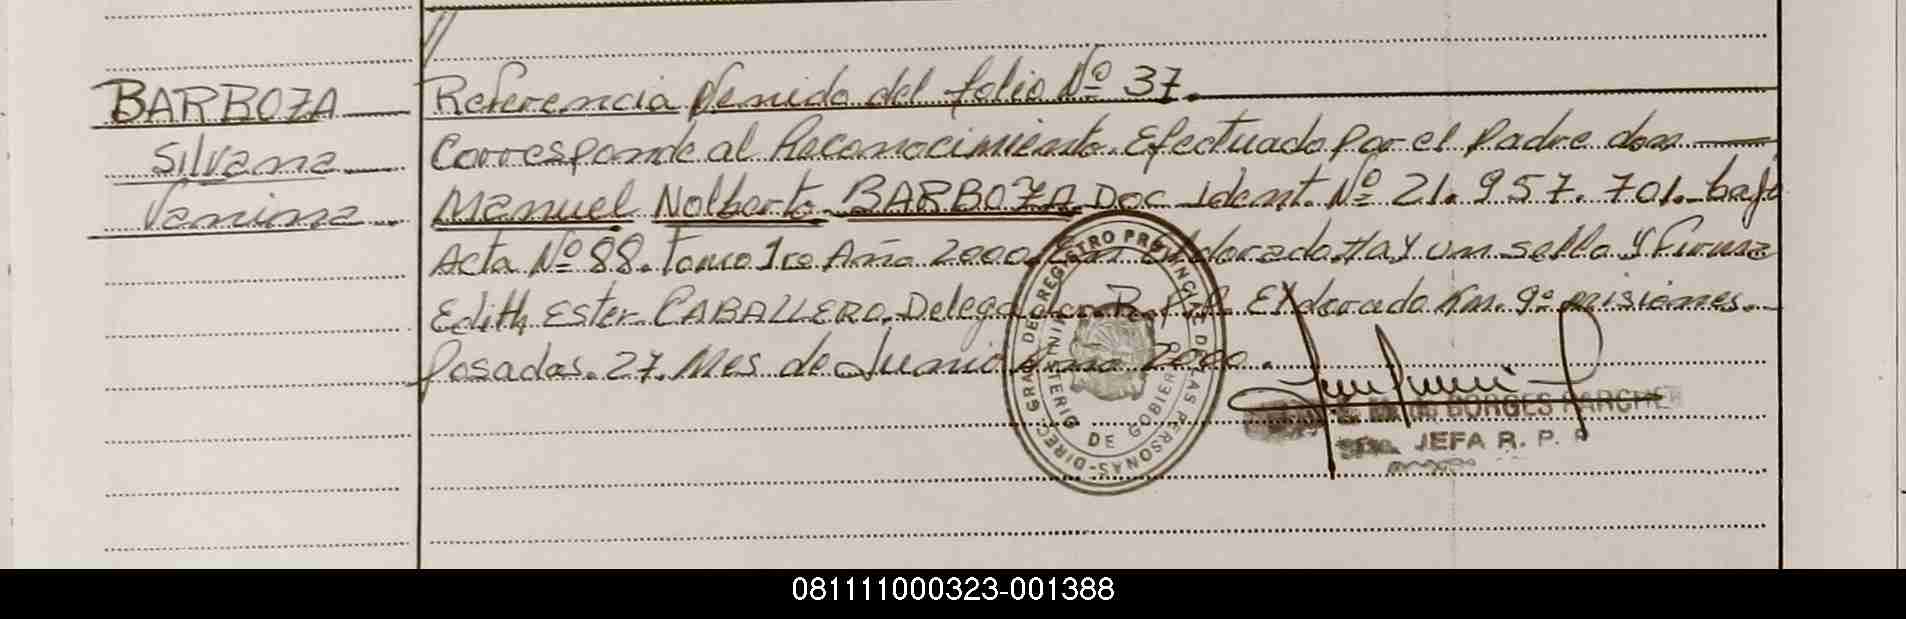 BARBOZA
Silvana
Vanina
Referencia Venida del folio Nº 37.
Corresponde al Reconocimiento. Efectuado Por el Padre don
Manuel Nolberto BARBOZA Doc Ident. Nº 21.957.701. bajo
Acta Nº 88. Tomo 1ro Año 2000. En Eldorado. Hay un sello y firma
Edith Ester CABALLERO. Delegada R.P.P. Eldorado Km. 9. misiones.
Posadas. 27. Mes de Junio Año 2000.
DIREC. GRAL DE REGISTRO PROVINCIAL DE LAS PERSONAS
MINISTERIO DE GOBIERNO
BORGES
JEFA R. P. P
081111000323-001388